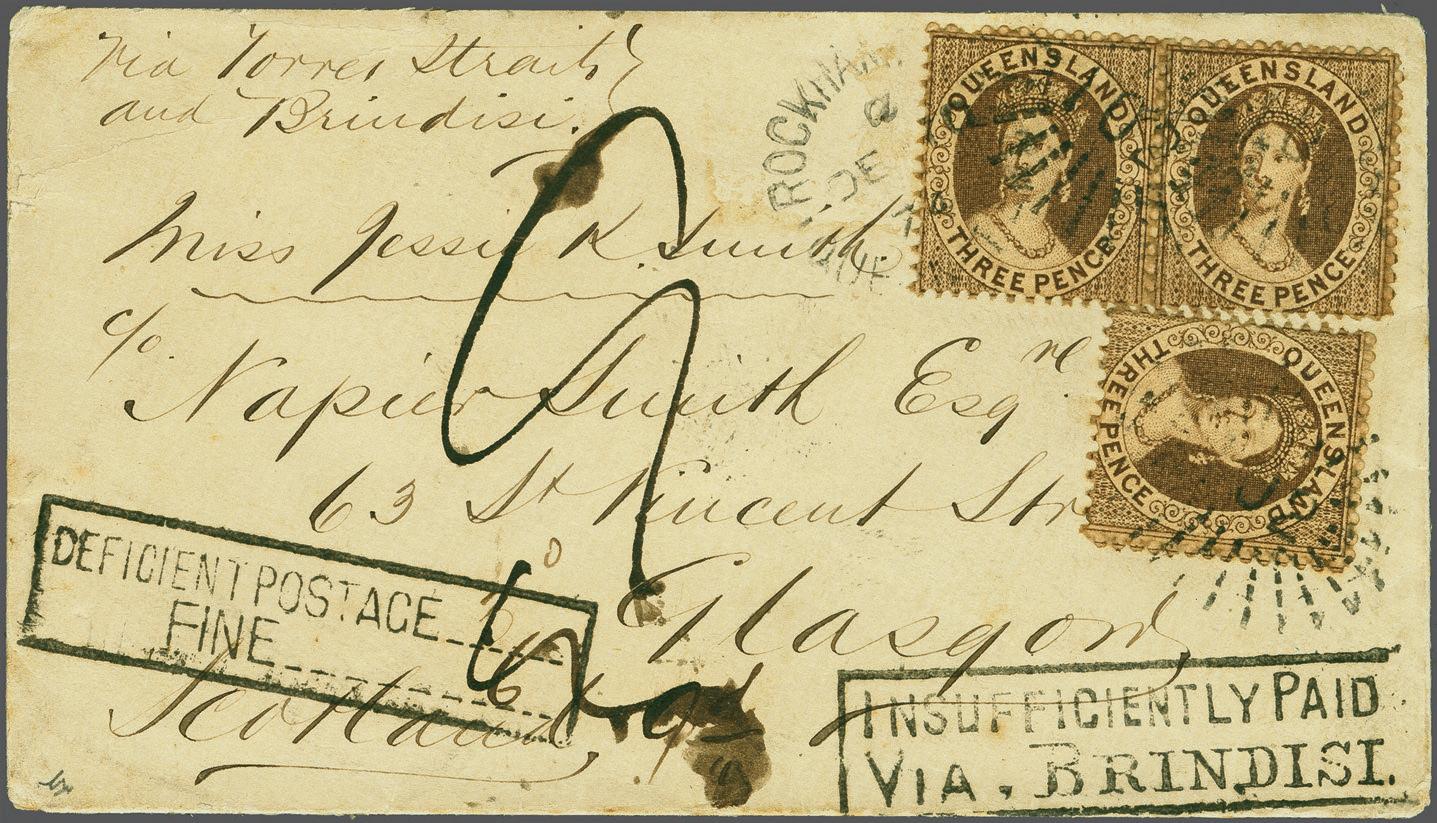 Via Torres Straits
and Brindisi.
Miss Jessie K. Smith.
c/o
Napier Smith Esqre
63 St Vincent Str
Glasgow
Scotland
ROCKHAM
DE
QUEENSLAND
THREE PENCE
QUEENSLAND
THREE PENCE
QUEENSLAND
THREE PENCE
DEFICIENT POSTAGE
FINE
6
INSUFFICIENTLY PAID
VIA. BRINDISI.